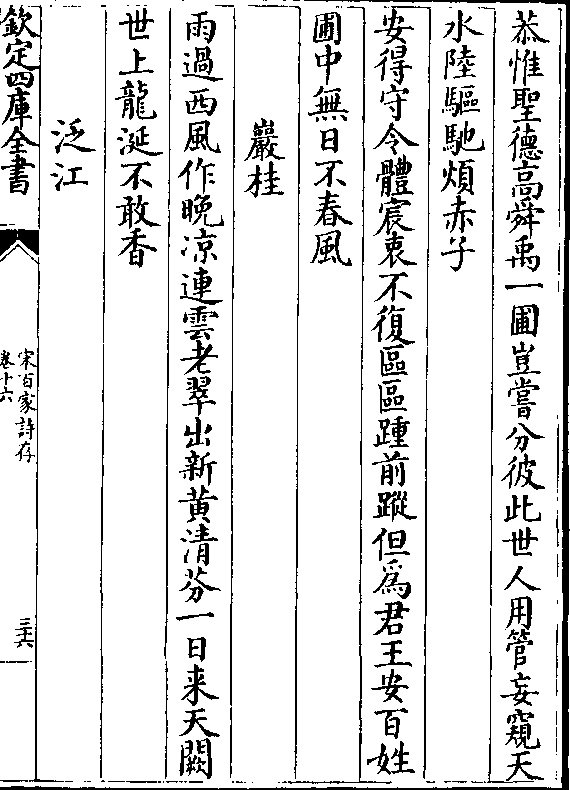 恭惟聖德高舜禹一圃豈嘗分彼此世人用管妄窺天
水陸驅馳煩赤子
安得守令體宸衷不復區區踵前蹤但爲君王安百姓
圃中無日不春風
巖桂
雨過西風作晚凉連雲老翠出新黄清芬一日来天闕
世上龍涎不敢香
泛江
欽定四庫全書
宋百家詩存
卷十六
三六